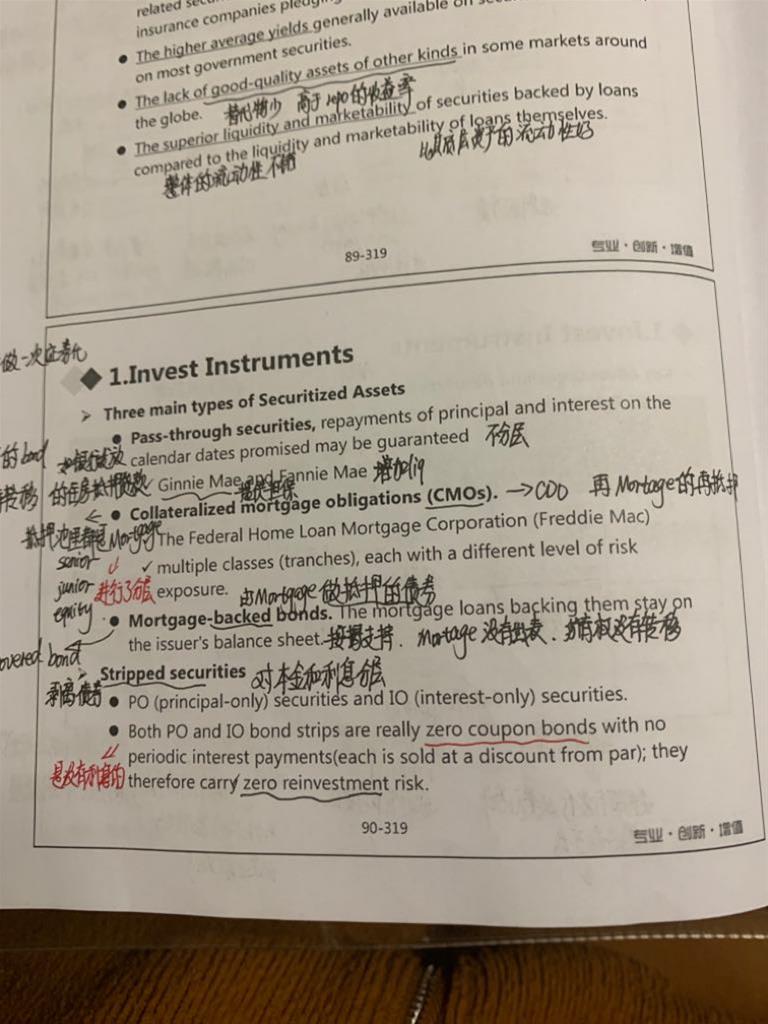 related
insurance companies
The higher average yields generally available on
on most government securities.
The lack of good-quality assets of other kinds in some markets around
the globe. 替代物少 高于repo的收益率
The superior liquidity and marketability of securities backed by loans
compared to the liquidity and marketability of loans themselves.
整体的流动性不错
89-319
专业·创新·增值
做一次证券化
1.Invest Instruments
Three main types of Securitized Assets
Pass-through securities, repayments of principal and interest on the
calendar dates promised may be guaranteed 不分层
Ginnie Mae and Fannie Mae
提供担保
Collateralized mortgage obligations (CMOs). →CDO 再Mortgage的再抵押
The Federal Home Loan Mortgage Corporation (Freddie Mac)
senior
multiple classes (tranches), each with a different level of risk
junior 进行了分层 exposure. 由Mortgage做抵押的债券
equity
Mortgage-backed bonds. The mortgage loans backing them stay on
the issuer's balance sheet. 按揭支持. Mortage没有出表. 所有权没有转移
overed bond
Stripped securities 对本金和利息分层
剥离债券
PO (principal-only) securities and IO (interest-only) securities.
Both PO and IO bond strips are really zero coupon bonds with no
periodic interest payments(each is sold at a discount from par); they
是没有利息的
therefore carry zero reinvestment risk.
90-319
专业·创新·增值